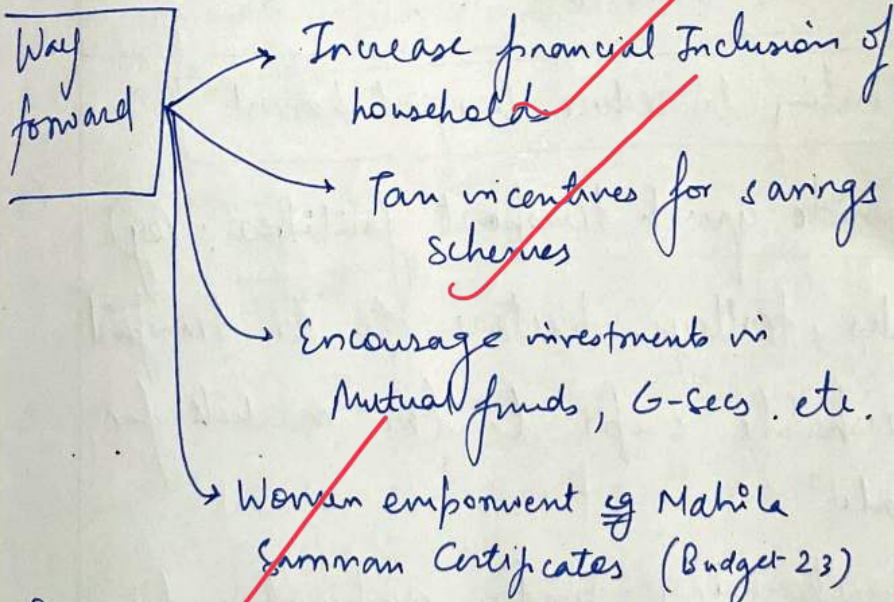 Way
forward
Increase financial Inclusion of
households
Tax incentives for savings
schemes
Encourage investments in
Mutual funds, G-Secs. etc.
Women emporment eg Mahila
Samman Certificates (Budget-23)